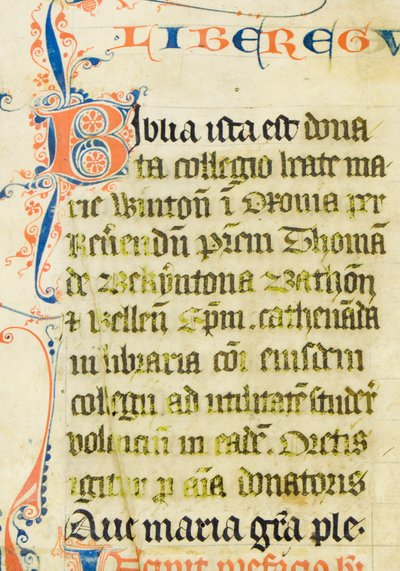 LIBER EGV
Biblia ista est dona
ta collegio beate ma
rie Wintoñ ĩ Oxonia per
Reuerendũ pr̃em Thomã
de Bekyntona Bathoñ
⁊ Welleñ Ep̃m . cathenãda
in libraria cõi eiusdem
collegii ad utilitatẽ studer̃
volenciũ in eadẽ. Oretis
igitur p aĩa donatoris
Aue maria gr̃a ple.